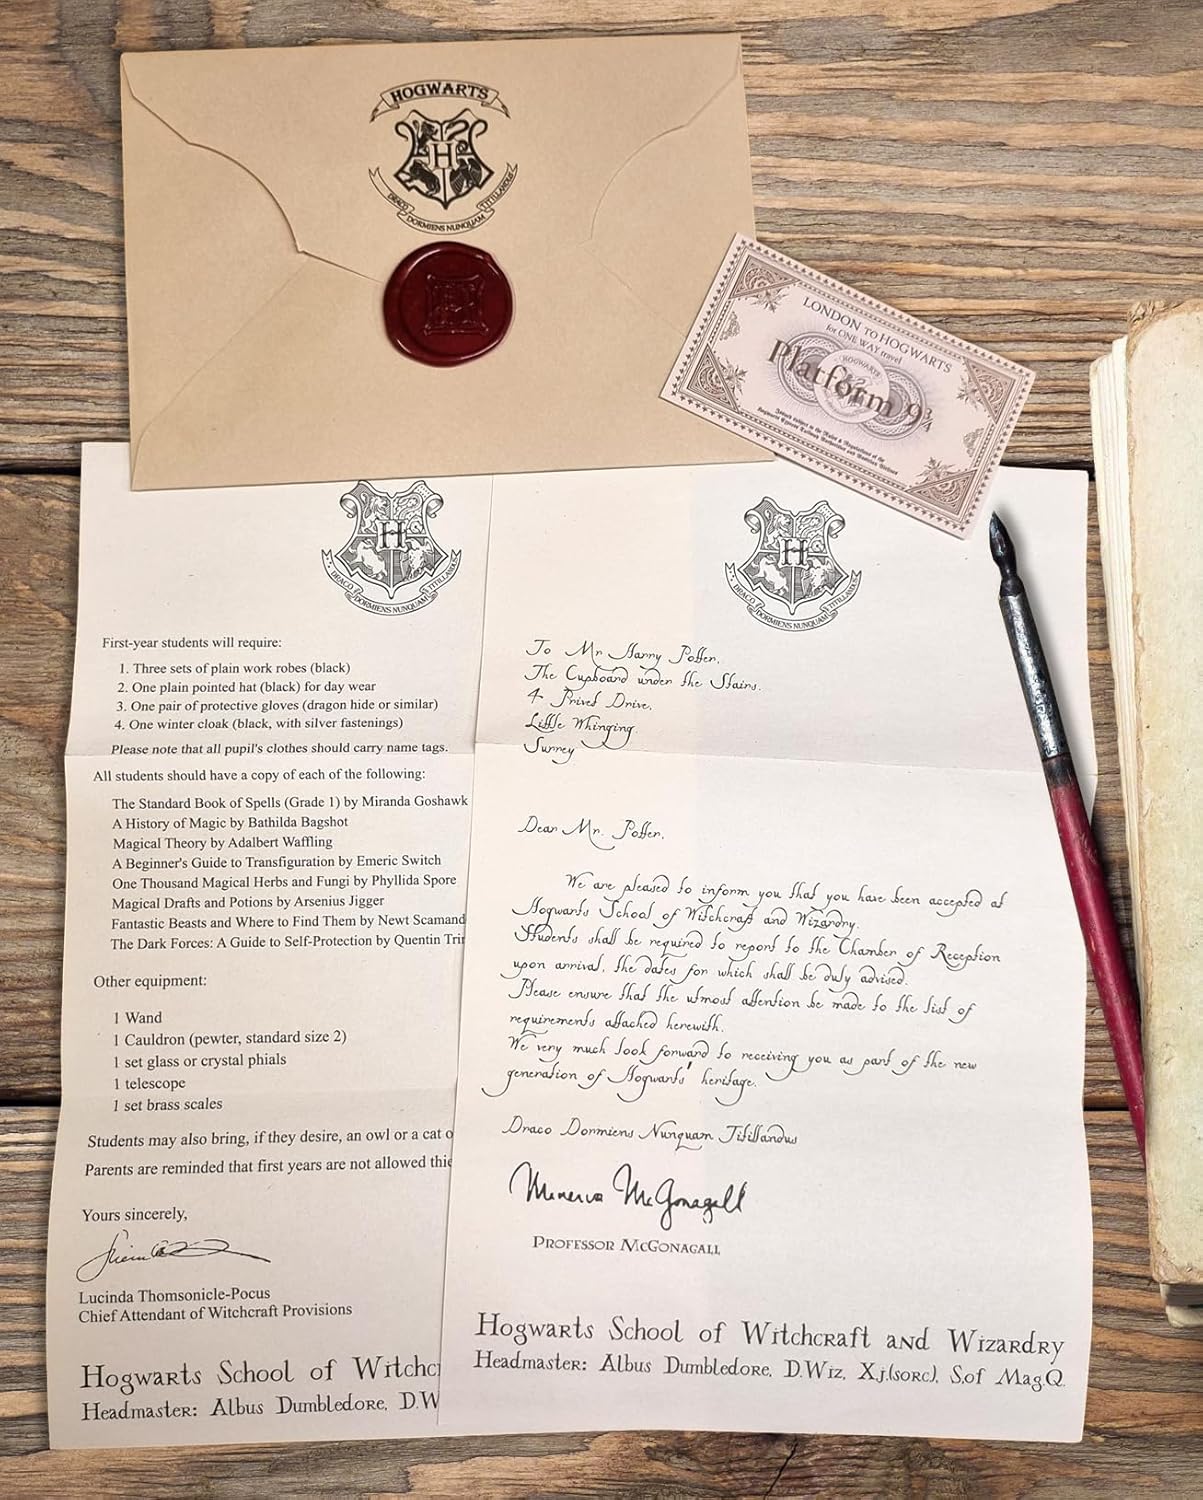 HOGWARTS
H
DRACO DORMIENS NUNQUAM TITILLANDUS
LONDON TO HOGWARTS
for ONE WAY travel
HOGWARTS
Platform 9¾
H
DRACO DORMIENS NUNQUAM TITILLANDUS
First-year students will require:
1. Three sets of plain work robes (black)
2. One plain pointed hat (black) for day wear
3. One pair of protective gloves (dragon hide or similar)
4. One winter cloak (black, with silver fastenings)
Please note that all pupil's clothes should carry name tags.
All students should have a copy of each of the following:
The Standard Book of Spells (Grade 1) by Miranda Goshawk
A History of Magic by Bathilda Bagshot
Magical Theory by Adalbert Waffling
A Beginner's Guide to Transfiguration by Emeric Switch
One Thousand Magical Herbs and Fungi by Phyllida Spore
Magical Drafts and Potions by Arsenius Jigger
Fantastic Beasts and Where to Find Them by Newt Scamand
The Dark Forces: A Guide to Self-Protection by Quentin Tri
Other equipment:
1 Wand
1 Cauldron (pewter, standard size 2)
1 set glass or crystal phials
1 telescope
1 set brass scales
Students may also bring, if they desire, an owl or a cat o
Parents are reminded that first years are not allowed
Yours sincerely,
Lucinda Thomsonicle-Pocus
Chief Attendant of Witchcraft Provisions
Hogwarts School of Witchc
Headmaster: Albus Dumbledore, D.W
H
DRACO DORMIENS NUNQUAM TITILLANDUS
To Mr Harry Potter,
The Cupboard under the Stairs,
4 Privet Drive,
Little Whinging
Surrey
Dear Mr. Potter,
We are pleased to inform you that you have been accepted at
Hogwarts School of Witchcraft and Wizardry.
Students shall be required to report to the Chamber of Reception
upon arrival, the dates for which shall be duly advised.
Please ensure that the utmost attention be made to the list of
requirements attached herewith.
We very much look forward to receiving you as part of the new
generation of Hogwarts' heritage.
Draco Dormiens Nunquam Titillandus
Minerva McGonagall
PROFESSOR McGONAGALL
Hogwarts School of Witchcraft and Wizardry
Headmaster: Albus Dumbledore, D.Wiz, X.j.(sorc), S.of Mag.Q.